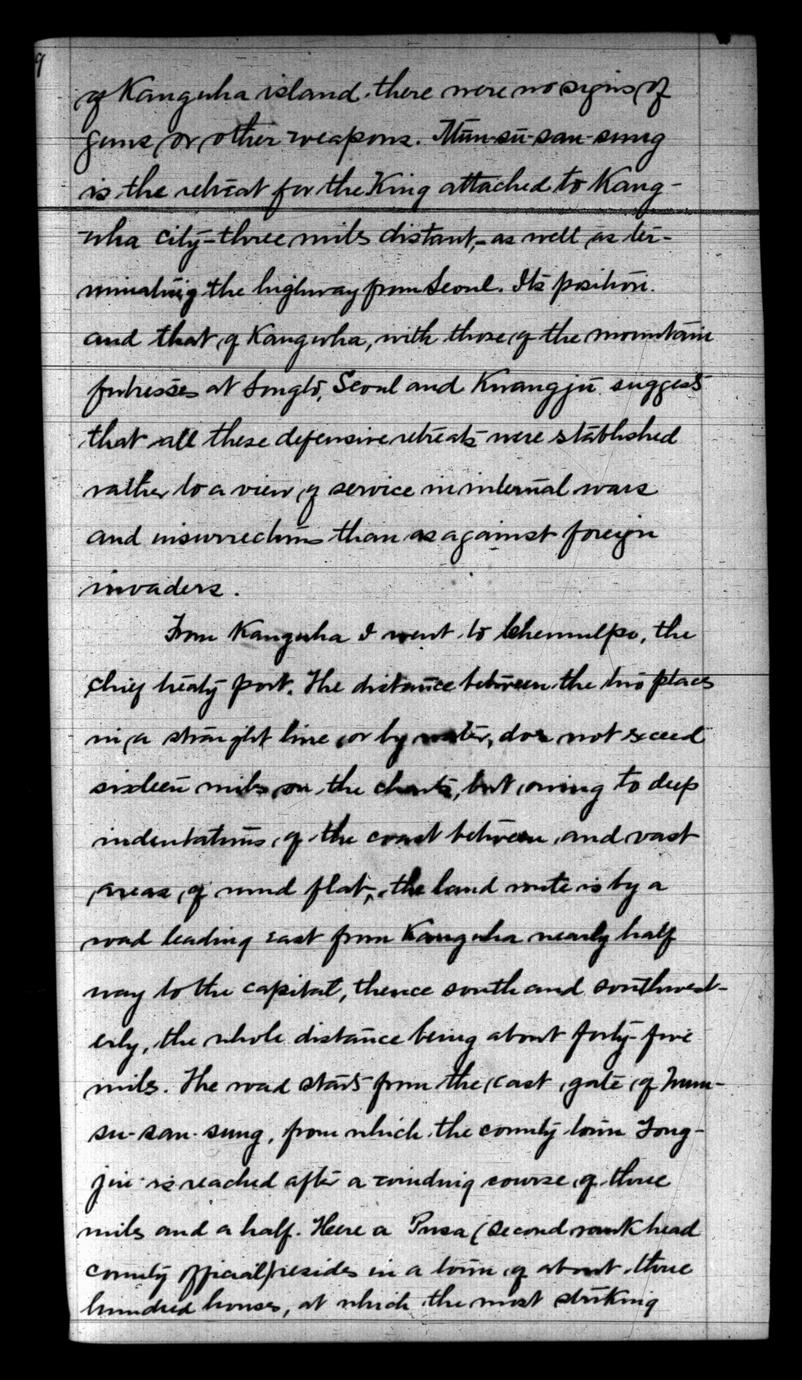 9
of Kangwha island there were no signs of
guns or other weapons. Mun-su-san-sung
is the retreat for the King attached to Kang-
wha city-three miles distant,-as well as ter-
minating the highway from Seoul. Its position
and that of Kangwha, with those of the mountain
fortresses at Songto, Seoul and Kwangju suggest
that all these defensive retreats were established
rather to a view of service in internal wars
and insurrections than as against foreign
invaders.
From Kangwha I went to Chemulpo, the
chief treaty port. The distance between the two places
in a straight line or by water, does not exceed
sixteen miles on the charts, but owing to deep
indentations of the coast between and vast
areas of mud flat, the land route is by a
road leading east from Kangwha nearly half
way to the capital, thence south and southwest-
erly, the whole distance being about forty-five
miles. The road starts from the east gate of Mun-
su-san-sung, from which the county town Tong-
jin is reached after a winding course of three
miles and a half. Here a Pusa (second rank head
county official) resides in a town of about three
hundred houses, at which the most striking